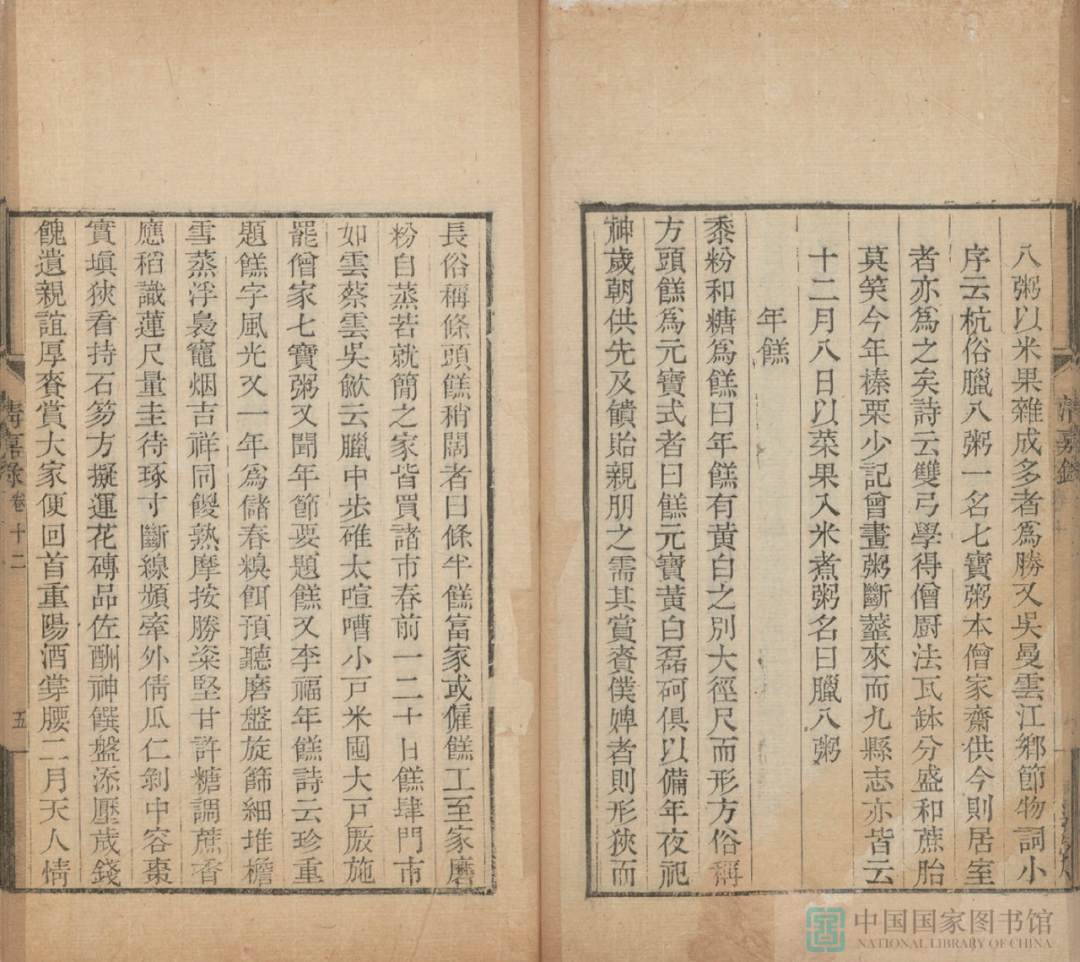 八粥以米果雜成多者爲勝又吳曼雲江鄉節物詞小
序云杭俗臘八粥一名七寶粥本僧家齋供今則居室
者亦爲之矣詩云雙弓學得僧厨法瓦缽分盛和蔗飴
莫笑今年榛栗少記曾畫粥斷虀來而九縣志亦皆云
十二月八日以菜果入米煮粥名曰臘八粥
年餻
黍粉和糖爲餻曰年餻有黃白之別大徑尺而形方俗稱
方頭餻爲元寶式者曰餻元寶黃白磊砢俱以備年夜祀
神歲朝供先及饋貽親朋之需其賞賚僕婢者則形狹而
長俗稱條頭餻稍闊者曰條半餻富家或僱餻工至家磨
粉自蒸若就簡之家皆買諸市春前一二十日餻肆門市
如雲蔡雲吳歈云臘中步碓太喧嘈小戶米囤大戶厫施
罷僧家七寶粥又聞年節要題餻又李福年餻詩云珍重
題餻字風光又一年爲儲春糗餌預聽磨盤旋篩細堆檐
雪蒸浮裊竈烟吉祥同饅熟摩按勝粢堅甘許糖調蔗香
應稻識蓮尺量圭待琢寸斷線頻牽外倩瓜仁剝中容棗
實塡狹看持石笏方擬運花磚品佐酬神饌盤添壓歲錢
餽遺親誼厚賚賞大家便回首重陽酒撐腰二月天人情
清嘉錄 卷十二 五
中国国家图书馆
NATIONAL LIBRARY OF CHINA